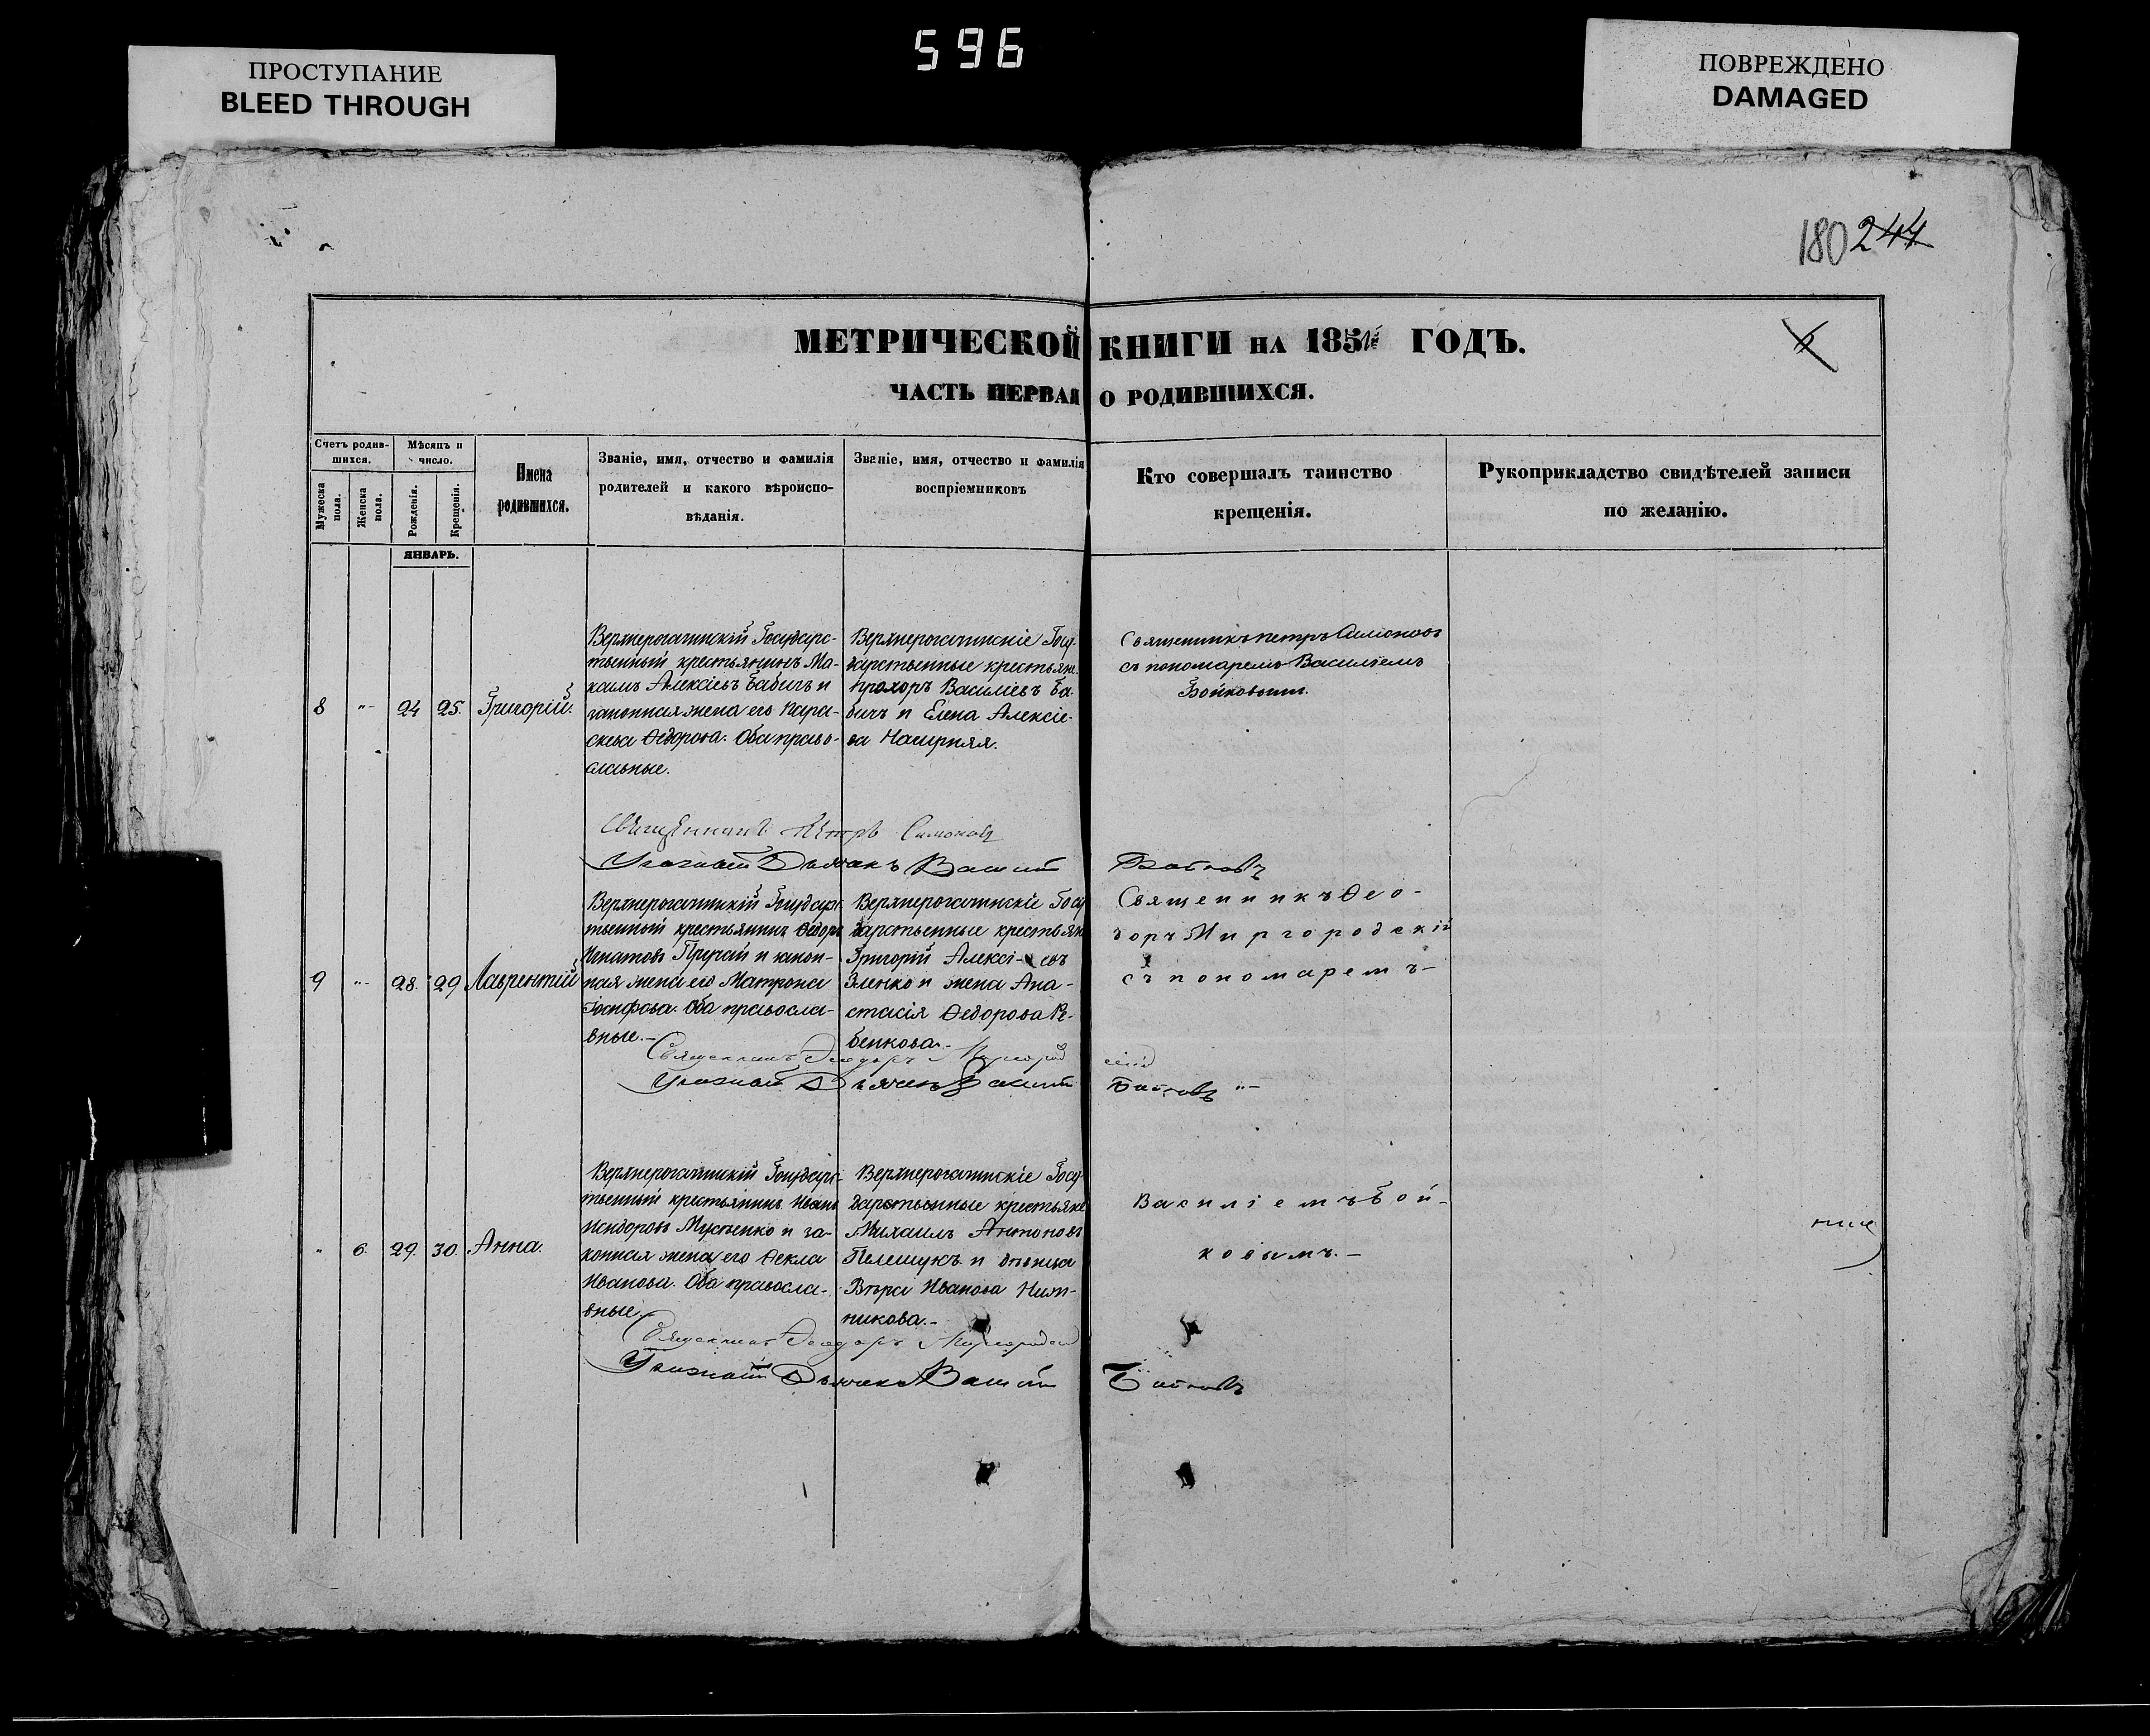 596
ПРОСТУПАНИЕ
BLEED THROUGH
ПОВРЕЖДЕНО
DAMAGED
180 244
МЕТРИЧЕСКОЙ КНИГИ НА 185 ГОДЪ.
ЧАСТЬ ПЕРВАЯ О РОДИВШИХСЯ.
Счетъ родив-
шихся.
Мужеска пола.
Женска пола.
Мѣсяцъ и
число.
Рожденія.
Крещенія.
Имена
родившихся.
Званіе, имя, отчество и фамилія
родителей и какого вѣроиспо-
вѣданія.
Званіе, имя, отчество и фамилія
воспріемниковъ
Кто совершалъ таинство
крещенія.
Рукоприкладство свидѣтелей записи
по желанію.
ЯНВАРЬ.
8 "- 24 25. Григорій.
Верхнерогачикскій Государс-
твенный крестьянинъ Ма-
ксимъ Алексіевъ Бабичъ и
законная жена его Пара-
скева Ѳедорова. Оба право-
славные.
Верхнерогачикскіе Госу-
дарственные крестьяне
Прохоръ Василіевъ Ба-
бичъ и Елена Алексіе-
ва Нагирняя.
Священникъ Петръ Симоновъ
съ пономаремъ Василіемъ
Бойковымъ.
Священникъ Петръ Симоновъ
Указный Дьячекъ Бойковъ
9 "- 28. 29 Лаврентій
Верхнерогачикскій Государс-
твенный крестьянинъ Ѳедоръ
Игнатовъ и закон-
ная жена его Матрона
Іосифова. Оба правосла-
вные.-
Верхнерогачикскіе Госу
дарственные крестьяне
Григорій Алексі- евъ
Зленко и жена Ана-
стасія Ѳедорова
бенкова.-
Священникъ Ѳео-
доръ Миргородскій
съ пономаремъ-
Священникъ Ѳеодоръ Миргородскій
Указный Дьячекъ Бойковъ "-
" 6. 29. 30. Анна.
Верхнерогачикскій Государс-
твенный крестьянинъ Иванъ
Исидоровъ Мусіенко и за-
конная жена его Ѳекла
Иванова. Оба правосла-
вные.
Верхнерогачикскіе Госу-
дарственные крестьяне
Михаилъ Антоновъ
Пелешукъ и дѣвица
Вѣра Иванова
никова.-
Василіемъ Бой-
ковымъ.-
Священникъ Ѳеодоръ Миргородскій
Указный Дьячекъ Бойковъ